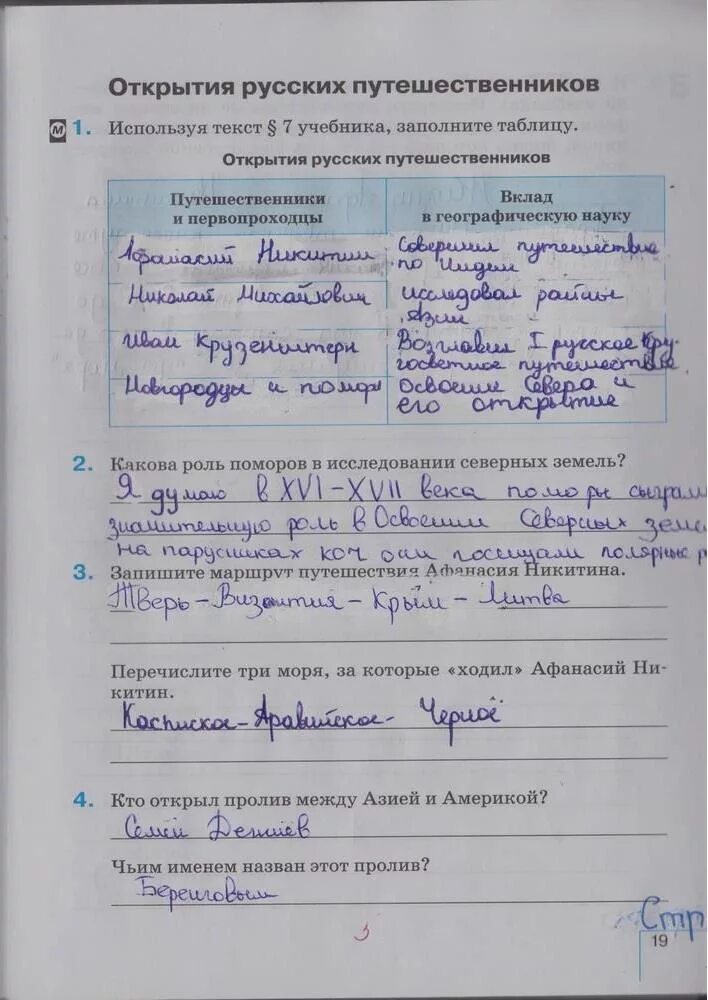 Открытия русских путешественников
М 1. Используя текст § 7 учебника, заполните таблицу.
Открытия русских путешественников
Путешественники
и первопроходцы
Вклад
в географическую науку
Афанасий Никитин
Совершил путешествие
по Индии
Николай Михайлович
исследовал районы
Азии
Иван Крузенштерн
Возглавил I русское кру
госветное путешествие
Новгородцы и поморы
Освоение Севера и
его открытие
2. Какова роль поморов в исследовании северных земель?
Я думаю в XVI-XVII века поморы сыграли
значительную роль в Освоении Северных земе
на парусниках коч они посещали полярные р
3. Запишите маршрут путешествия Афанасия Никитина.
Тверь - Византия - Крым - Литва
Перечислите три моря, за которые «ходил» Афанасий Ни-
китин.
Каспиское - Аравийское - Черноё
4. Кто открыл пролив между Азией и Америкой?
Семён Дежнёв
Чьим именем назван этот пролив?
Беринговым
Стр
19